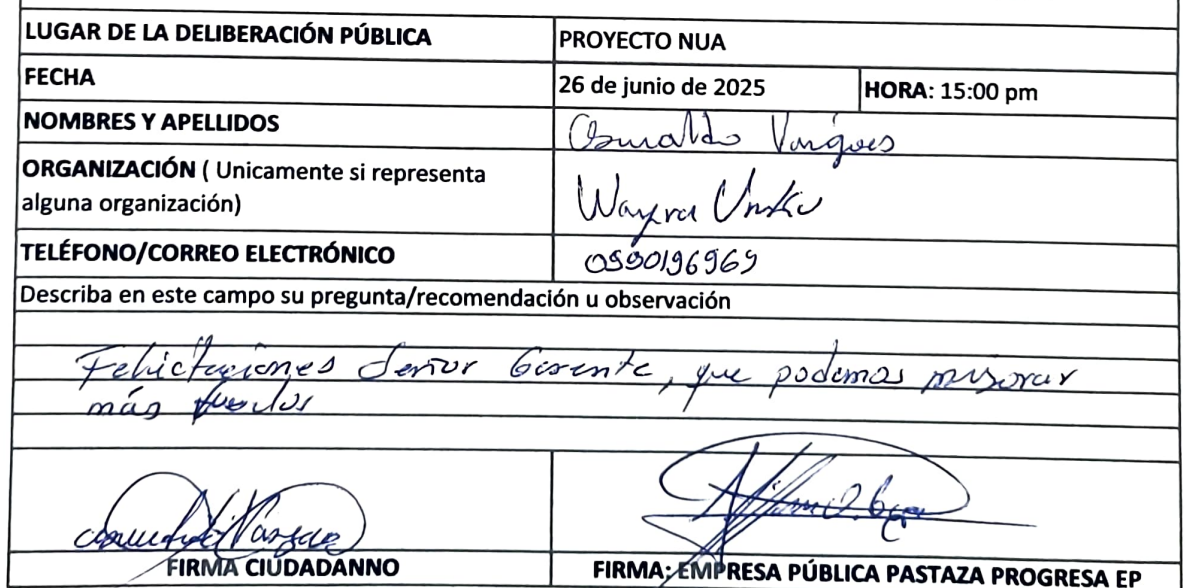 LUGAR DE LA DELIBERACIÓN PÚBLICA PROYECTO NUA
FECHA 26 de junio de 2025 HORA: 15:00 pm
NOMBRES Y APELLIDOS Osmaldo Vargas
ORGANIZACIÓN ( Unicamente si representa
alguna organización) Wayra
TELÉFONO/CORREO ELECTRÓNICO 0990196969
Describa en este campo su pregunta/recomendación u observación
Felicitaciones Señor Gerente, que podemos mejorar
más
FIRMA CIUDADANNO FIRMA: EMPRESA PÚBLICA PASTAZA PROGRESA EP